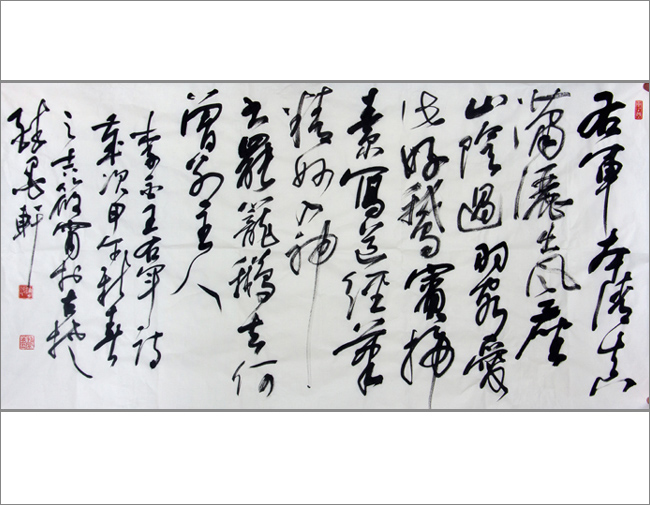 右軍本清真
瀟灑出風塵
山陰過羽客愛
此好鵝賓掃
素寫道經筆
精妙入神
書罷籠鵝去何
曾別主人
李白王右軍詩
歲次甲午新春
之吉於古
墨軒